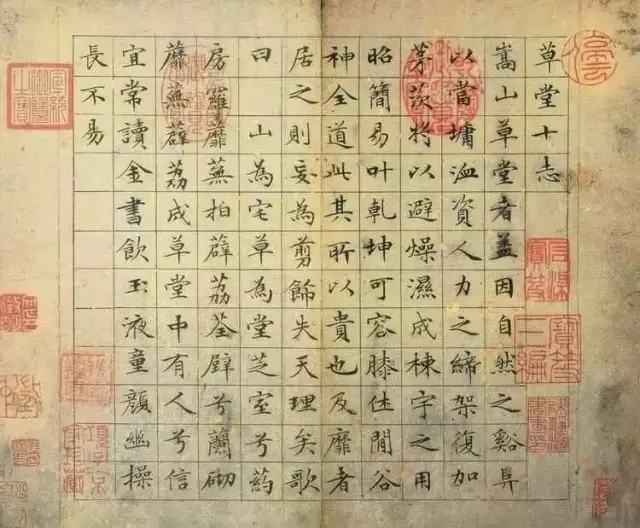 草堂十志
嵩山草堂者盖因自然之谿阜
以當墉洫資人力之締架復加
茅茨將以避燥濕成棟宇之用
昭簡易叶乾坤可容膝休閒谷
神全道此其所以貴也及靡者
居之則妄為剪飾失天理矣歌
曰 山為宅草為堂芝室兮葯
房羅蘼蕪拍薜荔荃壁兮蘭砌
蘼蕪薜荔成草堂中有人兮信
宜常讀金書飲玉液童顏幽操
長不易
石渠寶笈
寶笈三編